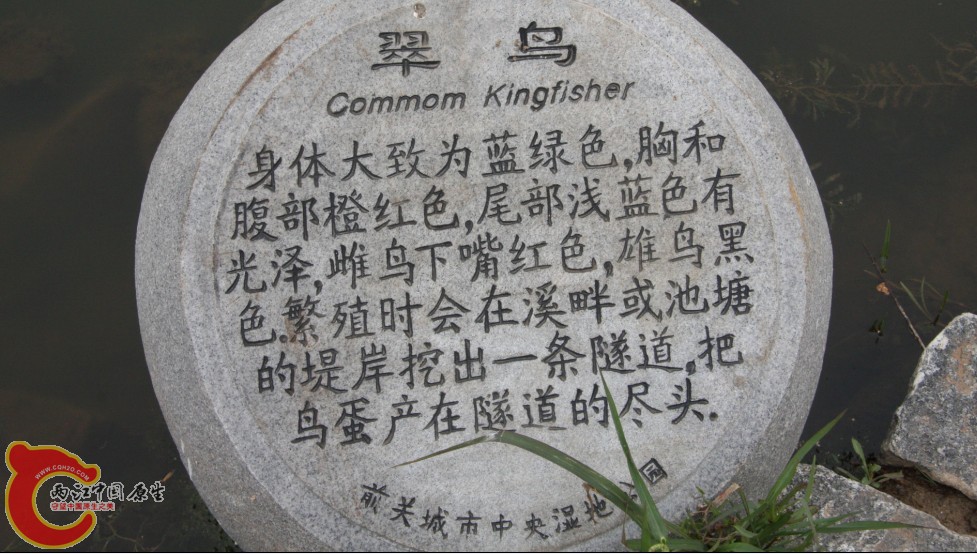 翠鸟
Commom Kingfisher
身体大致为蓝绿色,胸和
腹部橙红色,尾部浅蓝色有
光泽,雌鸟下嘴红色,雄鸟黑
色.繁殖时会在溪畔或池塘
的堤岸挖出一条隧道,把
鸟蛋产在隧道的尽头.
前关城市中央湿地 园
WWW.CQH2O.COM
两江中国原生
守望中国原生之美